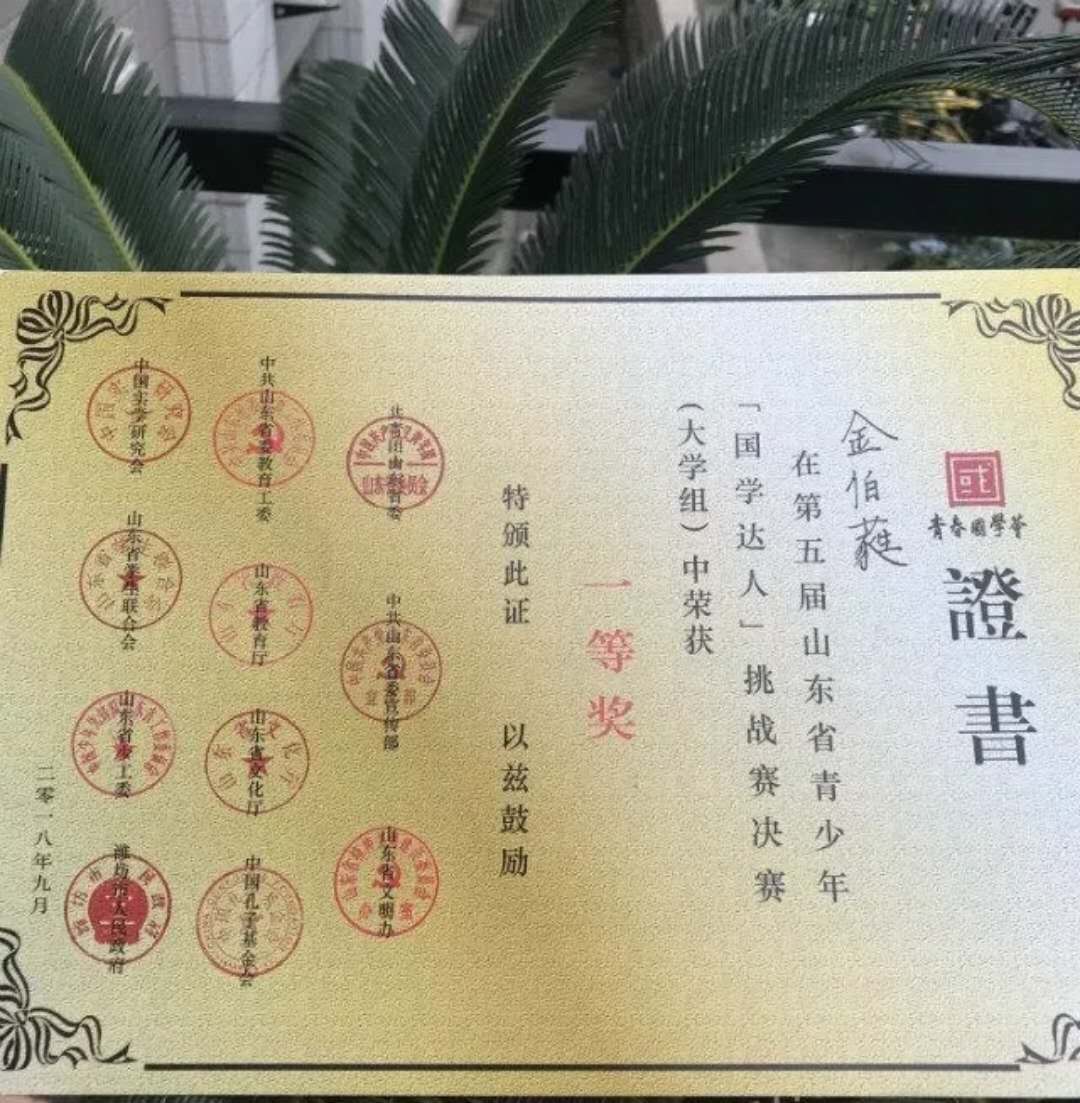 國
青春國學薈
證書
金伯蕤
在第五届山东省青少年
「国学达人」挑战赛决赛
(大学组)中荣获
一等奖
特颁此证 以兹鼓励
共青团山东省委
中共山东省委宣传部
山东省文明办
中共山东省委教育工委
山东省教育厅
山东省文化厅
中国孔子基金会
中国实学研究会
山东省学生联合会
山东省少工委
潍坊市人民政府
二零一八年九月